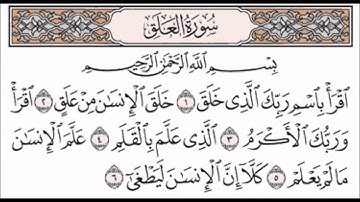 سُورَةُ الْعَلَقِ
بِسْمِ اللَّهِ الرَّحْمَٰنِ الرَّحِيمِ
اقْرَأْ بِاسْمِ رَبِّكَ الَّذِي خَلَقَ ١ خَلَقَ الْإِنسَانَ مِنْ عَلَقٍ ٢ اقْرَأْ
وَرَبُّكَ الْأَكْرَمُ ٣ الَّذِي عَلَّمَ بِالْقَلَمِ ٤ عَلَّمَ الْإِنسَانَ
مَا لَمْ يَعْلَمْ ٥ كَلَّا إِنَّ الْإِنسَانَ لَيَطْغَىٰ ٦